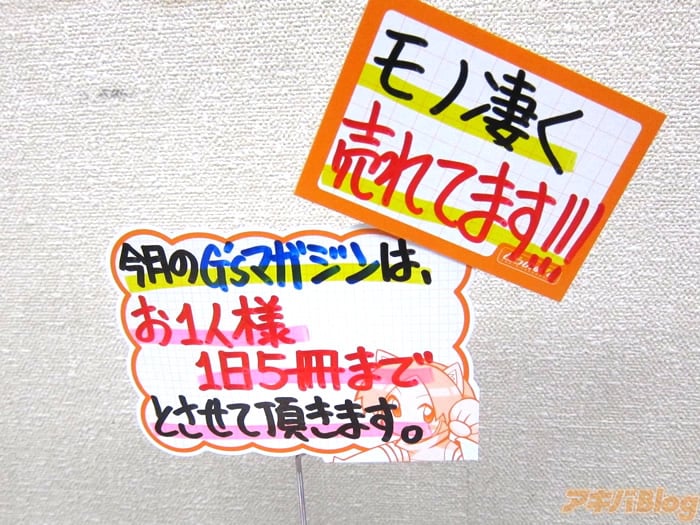 モノ凄く
売れてます!!!
今月のG'sマガジンは、
お1人様
1日5冊まで
とさせて頂きます。
アキバBlog